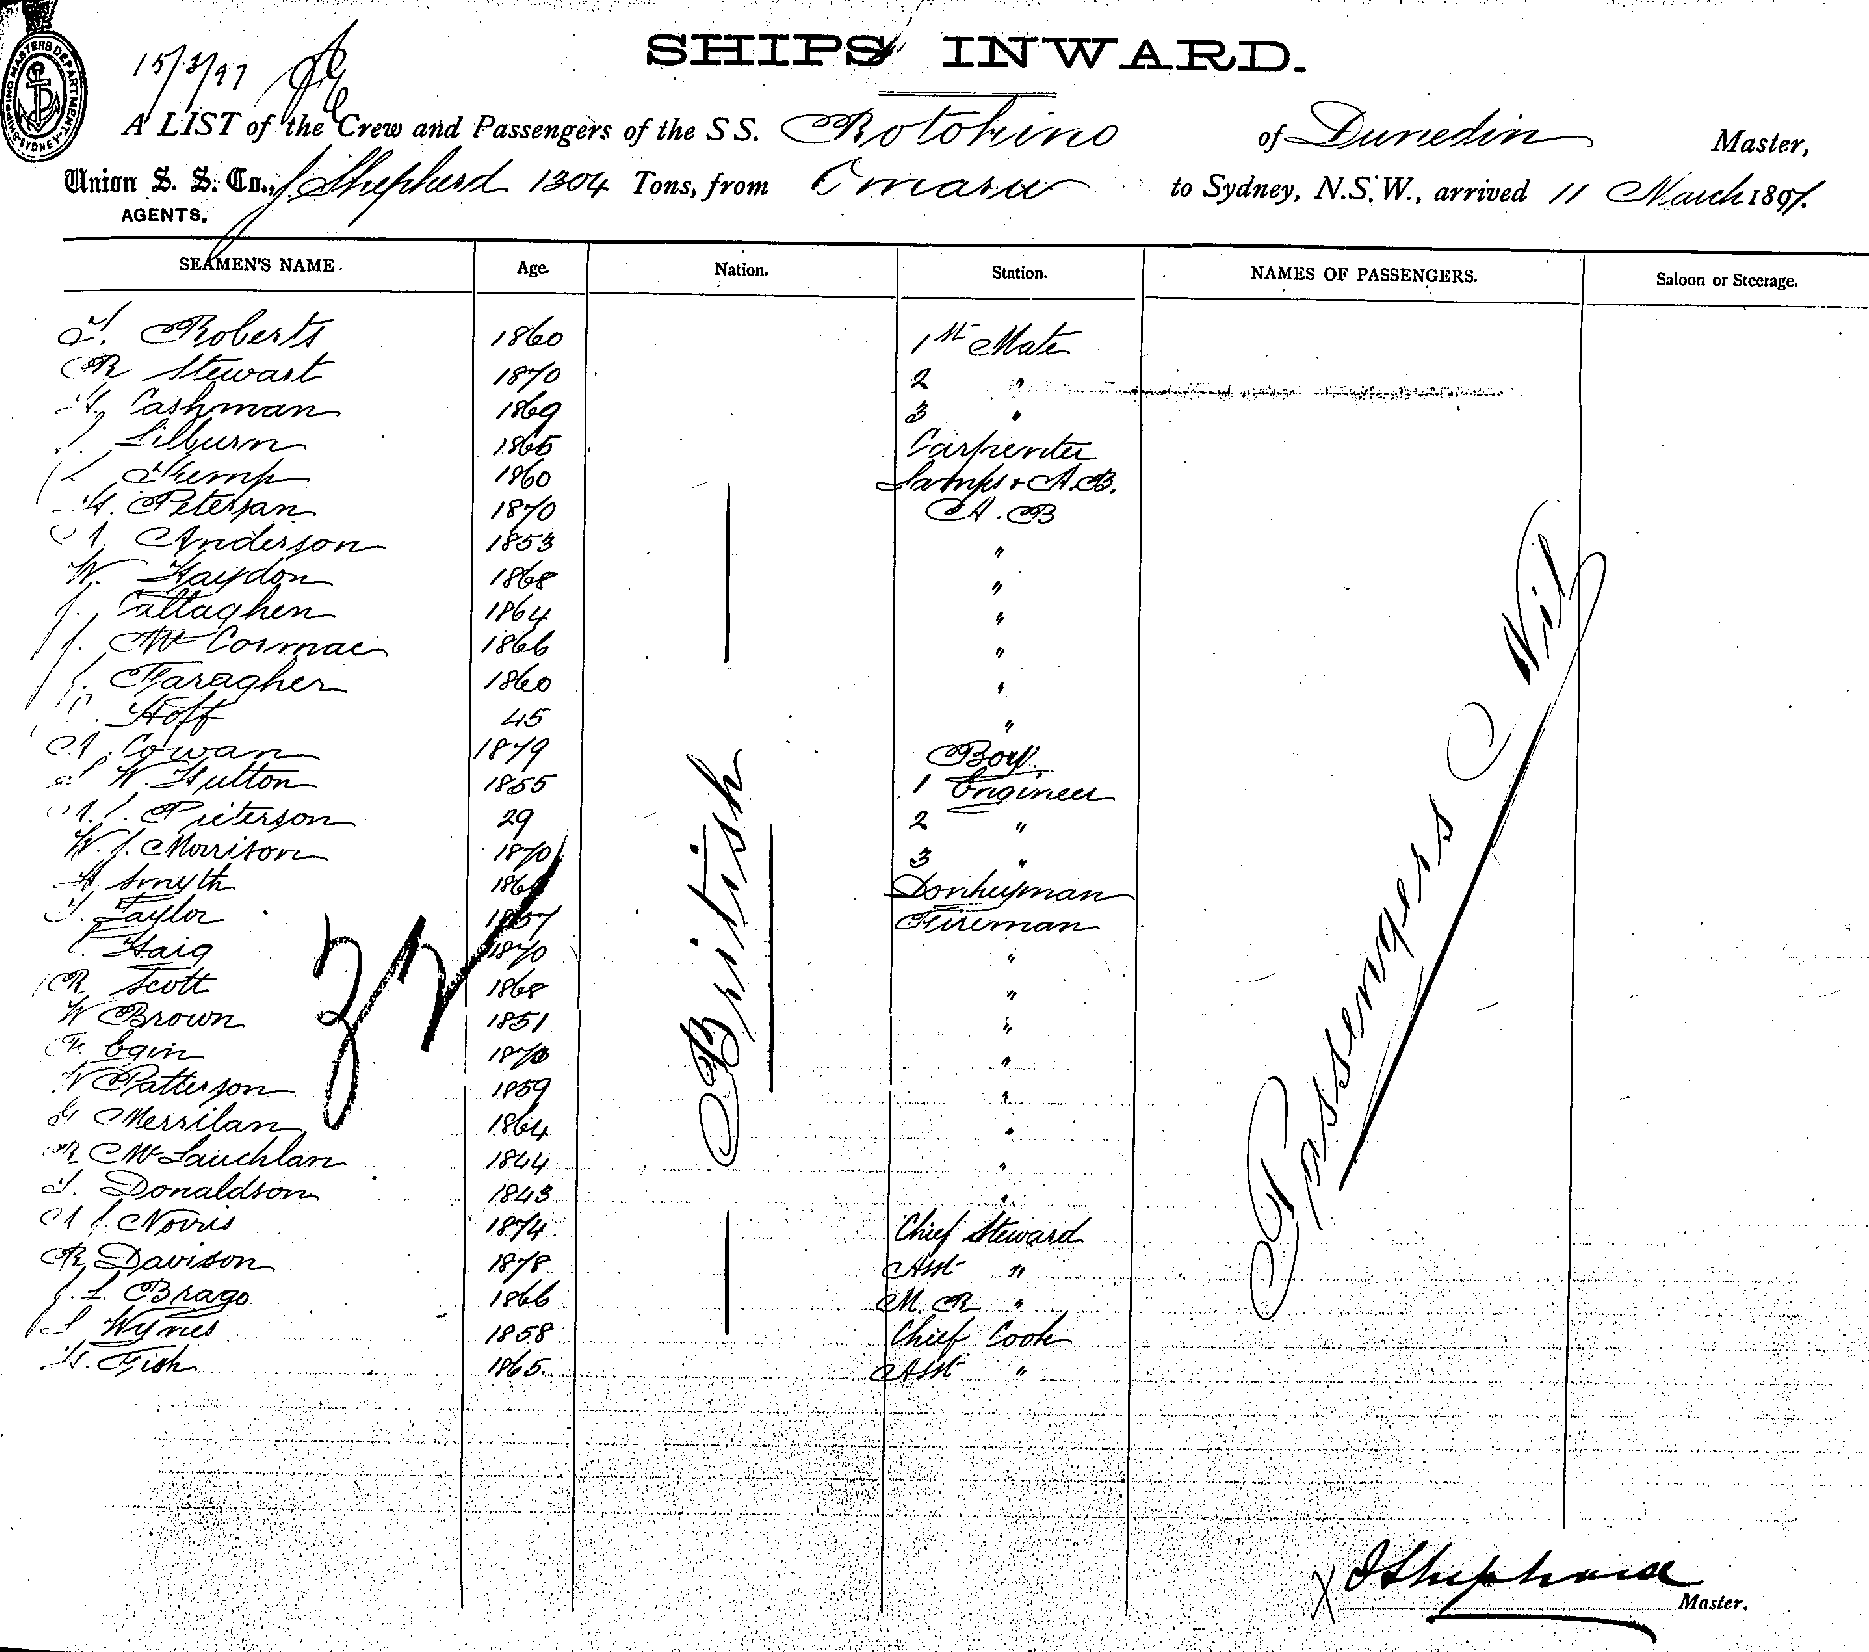 SHIPPING MASTERS DEPARTMENT SYDNEY
15/3/97
SHIPS INWARD.
A LIST of the Crew and Passengers of the S S. Rotokino of Dunedin Master,
Union S. S. Co., J Shepherd 1304 Tons, from Omara to Sydney, N.S.W., arrived 11 March 1897.
AGENTS.
SEAMEN'S NAME. Age. Nation. Station. NAMES OF PASSENGERS. Saloon or Steerage.
T. Roberts 1860 1st Mate
R Stewart 1870 2 "
Cashman 1869 3 "
Lilburn 1865 Carpenter
Kemp 1860 Lamps & A.B.
H. Petersan 1870 A. B
A Anderson 1853 "
W. Haydon 1868 "
J. Callaghen 1864 "
J. McCormac 1866 "
J. Faragher 1860 "
Hoff 45 "
A. Cowan 1879 Boy.
W. Hutton 1855 1 Engineer
A. J. Pieterson 29 2 "
W. J. Morrison 1870 3 "
A Smyth Donkeyman
T. Taylor 1857 Fireman
Haig 1870 "
R Scott 1868 "
W Brown 1851 "
F. Egin 1870 "
W Patterson 1859 "
G Merrilan 1864 "
R McLauchlan 1844 "
T. Donaldson 1843 "
A J. Norris 1874 Chief Steward
R Davison 1878 Asst "
J. L Brago 1866 M. R "
Wynes 1858 Chief Cook
H. Fish 1865 Asst "
32
British
Passengers Nil
J Shepherd
Master.